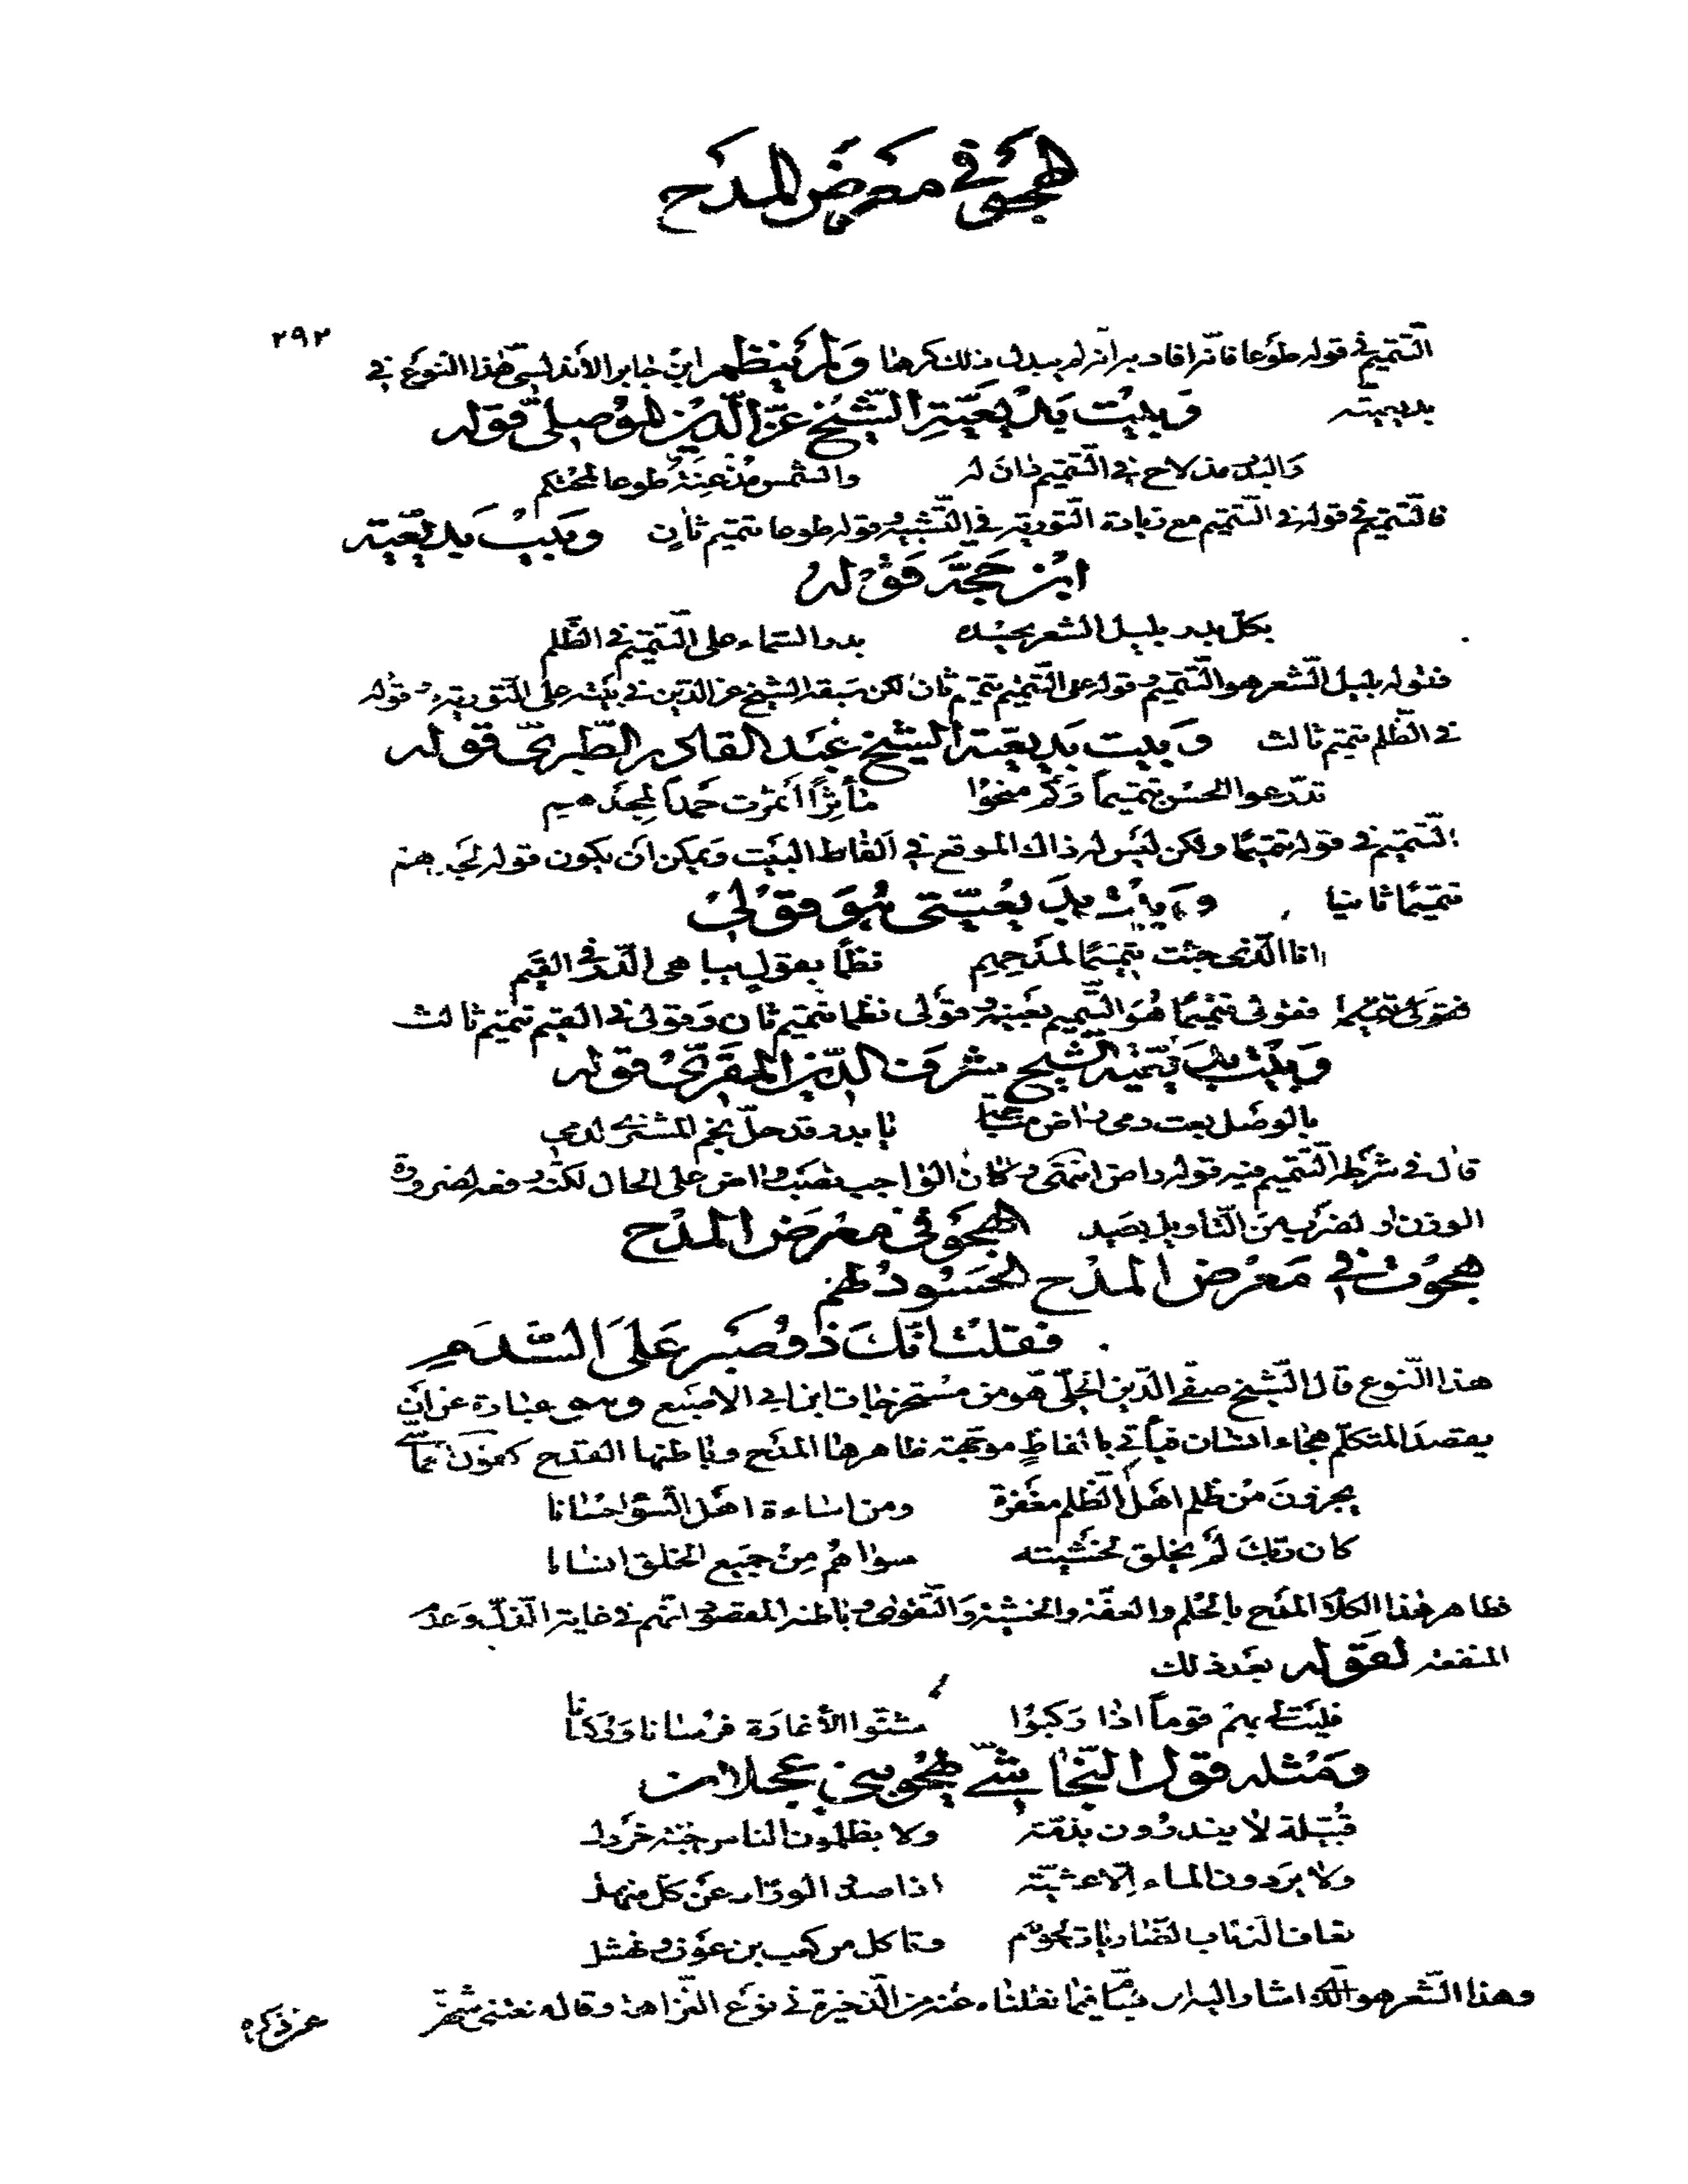 الهجو في معرض المدح
٢٩٢
التتميم في قوله طوعا فانه افاد به انه لم يبدل ذلك كرها ولم ينظم ابن جابر الأندلسي هذا النوع في
بديعيته وبيت بديعية الشيخ عز الدين الموصلي قوله
والبدر مذ لاح في التتميم دان له والشمس مذ عنه طوعا لمحتكم
فالتتميم في قوله في التتميم مع زيادة التورية في التشبيه وقوله طوعا تتميم ثان وبيت بديعية
ابن حجة قوله
بكل بدر بليل الشعر يحسده بدر السماء على التتميم في الظلم
فقوله بليل الشعر هو التتميم وقوله على التتميم تتميم ثان لكن سبقه الشيخ عز الدين في بيته على التورية وقوله
في الظلم تتميم ثالث وبيت بديعية الشيخ عبد القادر الطبري قوله
تدرعوا الحسن تتميماً وكم منحوا مأثراً أثمرت حمداً لمجدهم
التتميم في قوله تتميمًا ولكن ليس له ذاك الموقع في الفاظ البيت ويمكن ان يكون قوله لمجدهم
تتميمًا ثانيا وبيت بديعيتي هو قولي
انا الذي جئت تتميمًا لمدحهم نظمًا بقول يباهي الدر في القيم
فقولي تتميمًا هو التتميم بعينه وقولي نظما تتميم ثان وقولي في القيم تتميم ثالث
وبيت بديعية الشيخ شرف الدين المقري قوله
بالوصل بعت دمي راض يا بدر قد حل نجم المشتري لدمي
قال في شرحه التتميم فيه قوله راض انتهى وكان الواجب نصب راض على الحال لكنه رفعه لضرورة
الوزن او لضرب من التأويل بعيد الهجو في معرض المدح
هجوت في معرض المدح الحسود لهم
فقلت انك ذو صبر على السدم
هذا النوع قال الشيخ صفي الدين الحلي هو من مستخرجات ابن ابي الاصبع وهو عبارة عن ان
يقصد المتكلم هجاء انسان فيأتي بالفاظ موجهة ظاهرها المدح وباطنها القدح كقول
يجزون من ظلم اهل الظلم مغفرة ومن اساءة اهل السوء احسانا
كان ربك لم يخلق لخشيته سواهم من جميع الخلق انسانا
فظاهر هذا الكلام المدح بالحلم والعفة والخشية والتقوى وباطنه المقصود انهم في غاية الذل وعدم
المنفعة لقوله بعد ذلك
فليت لي بهم قوماً اذا ركبوا شنوا الاغارة فرسانا وركبانا
ومثله قول النجاشي يهجو بني عجلان
قبيلة لا يغدرون بذمة ولا يظلمون الناس حبة خردل
ولا يردون الماء الا عشية اذا صدر الوراد عن كل منهل
تعاف الذئاب الضاريات لحومهم وتأكل من كعب بن عوف ونهشل
وهذا الشعر هو الذي اشار اليه ابن بسام فيما نقلناه عنه من الذخيرة في نوع النزاهة وقال
عن ذكره